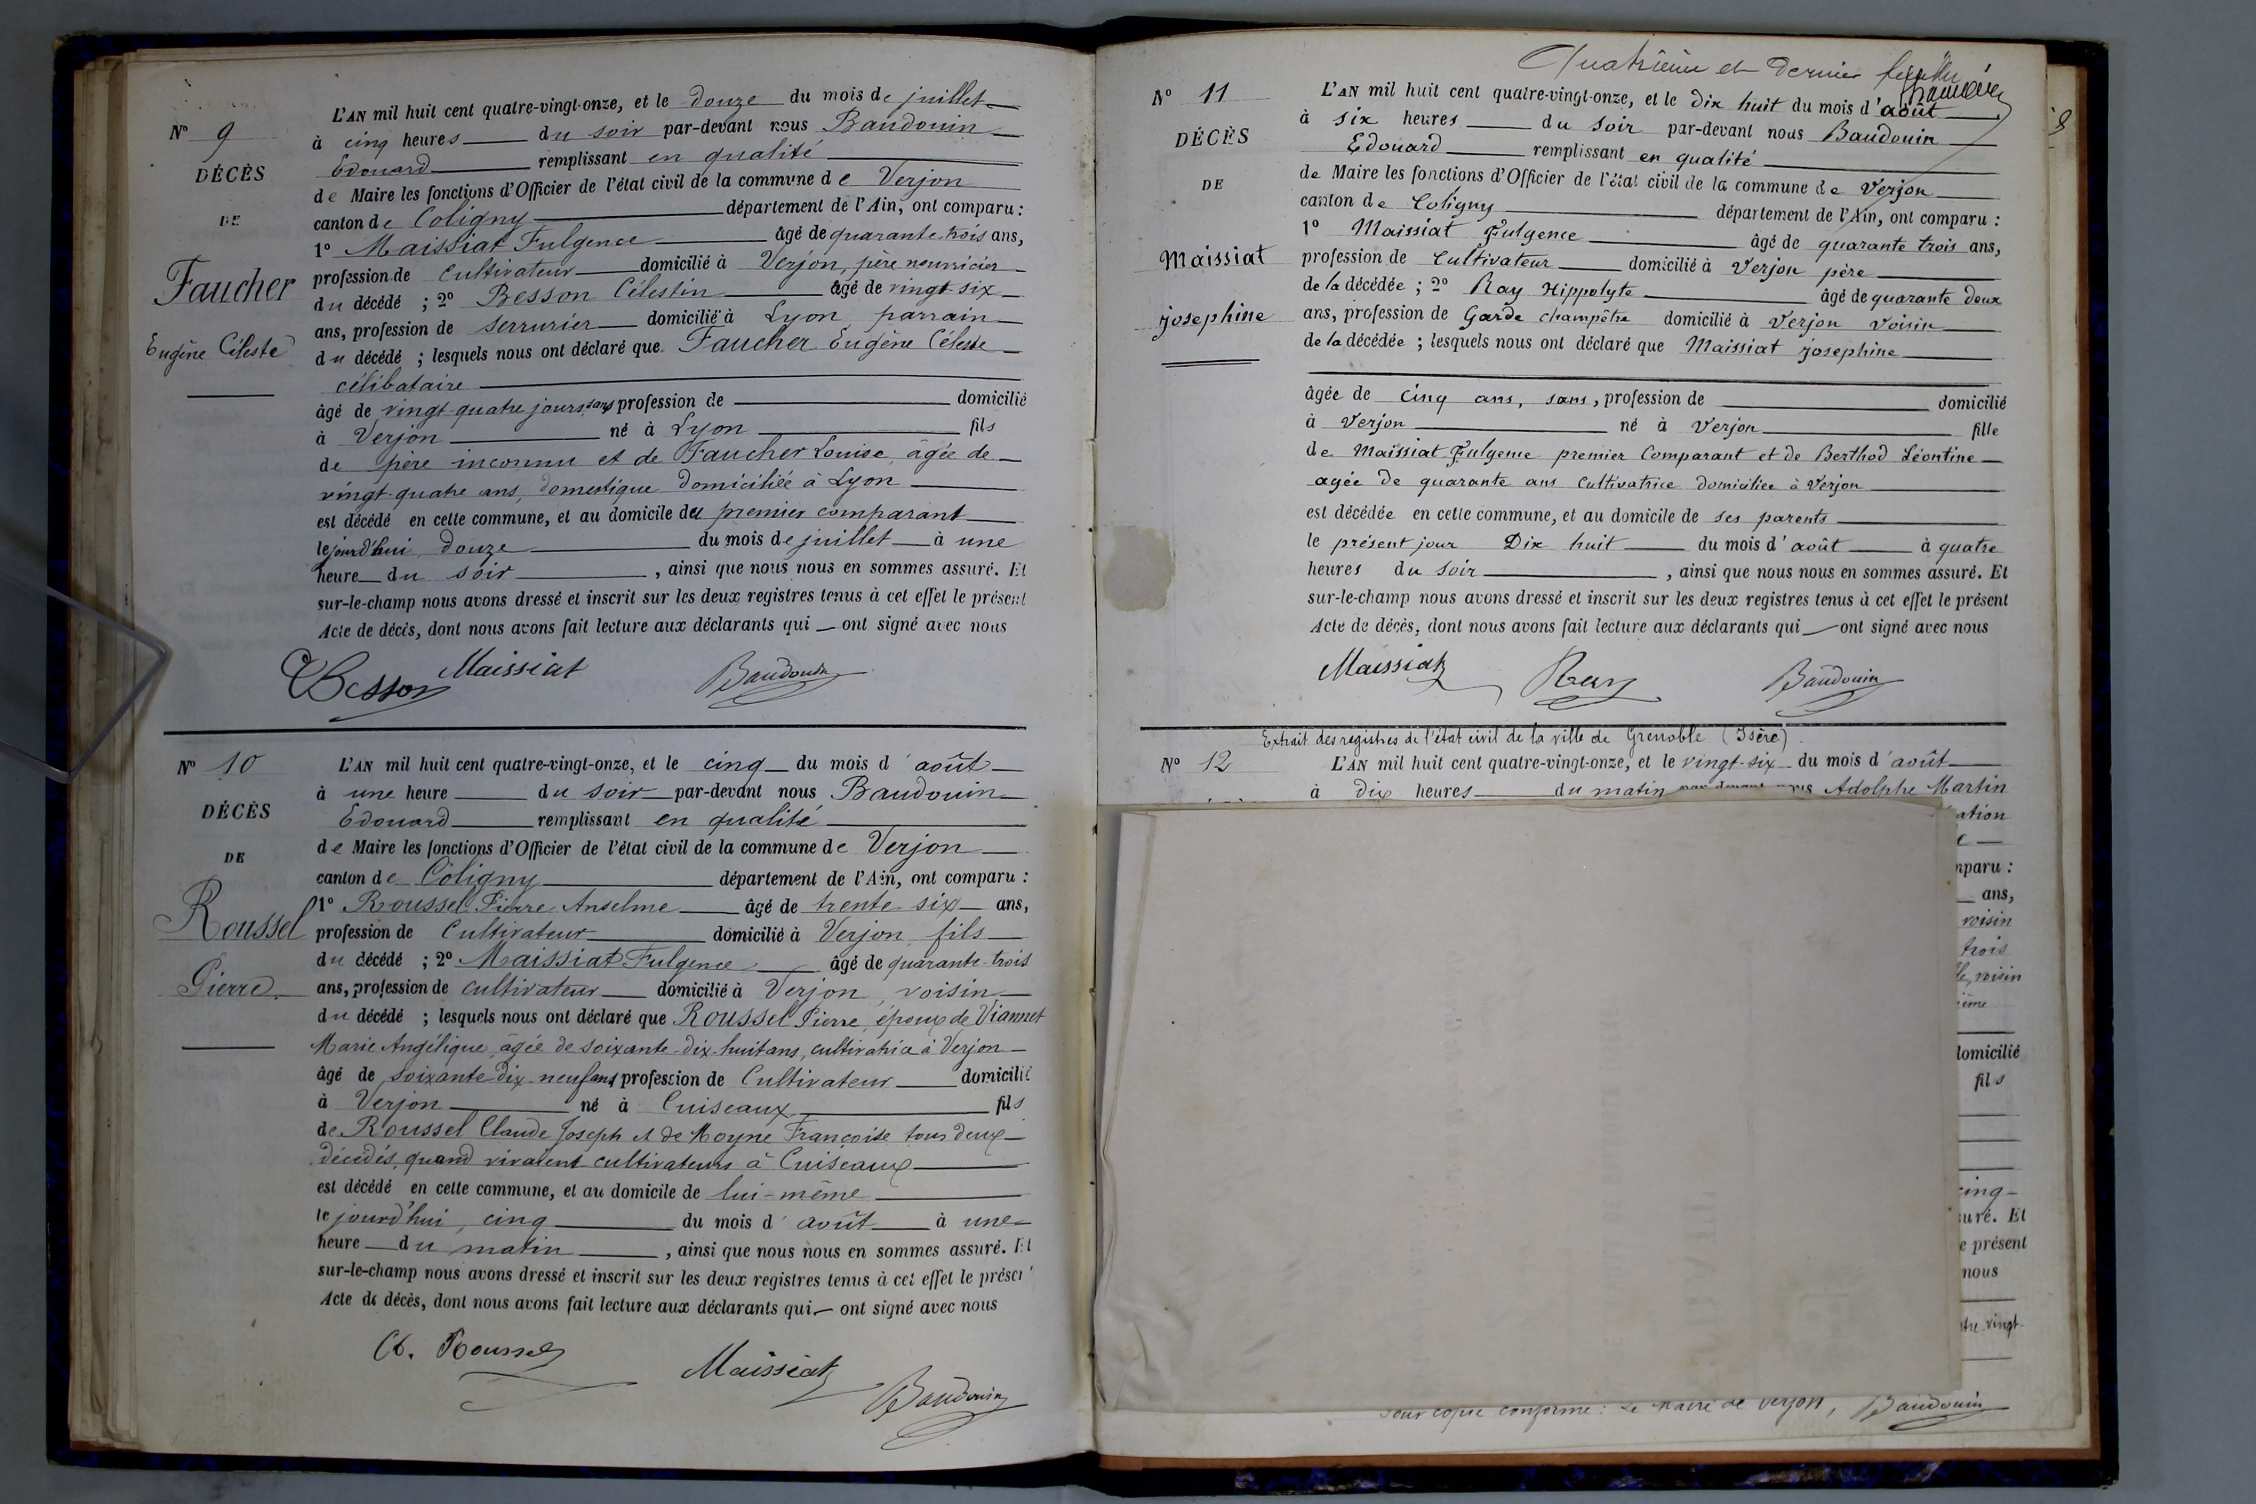 N° 9
DÉCÈS
DE
Faucher
Eugène Céleste
L'AN mil huit cent quatre-vingt-onze, et le douze du mois de juillet
à cinq heures du soir par-devant nous Baudouin
Edouard remplissant en qualité
de Maire les fonctions d'Officier de l'état civil de la commune de Verjon
canton de Coligny département de l'Ain, ont comparu :
1° Maissiat Fulgence âgé de quarante-trois ans,
profession de Cultivateur domicilié à Verjon, père nourricier
du décédé ; 2° Besson Célestin âgé de vingt-six
ans, profession de serrurier domicilié à Lyon parrain
du décédé ; lesquels nous ont déclaré que Faucher Eugène Céleste
célibataire
âgé de vingt-quatre jours, sans profession de domicilié
à Verjon né à Lyon fils
de père inconnu et de Faucher Louise, âgée de
vingt-quatre ans, domestique domiciliée à Lyon
est décédé en cette commune, et au domicile du premier comparant
le jourd'hui douze du mois de juillet à une
heure du soir , ainsi que nous nous en sommes assuré. Et
sur-le-champ nous avons dressé et inscrit sur les deux registres tenus à cet effet le présent
Acte de décès, dont nous avons fait lecture aux déclarants qui ont signé avec nous
Besson Maissiat Baudouin
N° 10
DÉCÈS
DE
Roussel
Pierre
L'AN mil huit cent quatre-vingt-onze, et le cinq du mois d'août
à une heure du soir par-devant nous Baudouin
Edouard remplissant en qualité
de Maire les fonctions d'Officier de l'état civil de la commune de Verjon
canton de Coligny département de l'Ain, ont comparu :
1° Roussel Pierre Anselme âgé de trente six ans,
profession de Cultivateur domicilié à Verjon, fils
du décédé ; 2° Maissiat Fulgence âgé de quarante-trois
ans, profession de cultivateur domicilié à Verjon, voisin
du décédé ; lesquels nous ont déclaré que Roussel Pierre, époux de Viannet
Marie Angélique, âgée de soixante-dix-huit ans, cultivatrice à Verjon
âgé de soixante dix-neuf ans profession de Cultivateur domicilié
à Verjon né à Cuiseaux fils
de Roussel Claude Joseph et de Moyne Françoise tous deux
décédés, quand vivaient cultivateurs à Cuiseaux
est décédé en cette commune, et au domicile de lui-même
le jourd'hui, cinq du mois d'août à une
heure du matin , ainsi que nous nous en sommes assuré. Et
sur-le-champ nous avons dressé et inscrit sur les deux registres tenus à cet effet le présen
Acte de décès, dont nous avons fait lecture aux déclarants qui ont signé avec nous
Roussel Maissiat Baudouin
Quatrième et dernier feuillet
N° 11
DÉCÈS
DE
Maissiat
josephine
L'AN mil huit cent quatre-vingt-onze, et le Dix huit du mois d'août
à six heures du soir par-devant nous Baudouin
Edouard remplissant en qualité
de Maire les fonctions d'Officier de l'état civil de la commune de Verjon
canton de Coligny département de l'Ain, ont comparu :
1° Maissiat Fulgence âgé de quarante trois ans,
profession de Cultivateur domicilié à Verjon père
de la décédée ; 2° Ray Hippolyte âgé de quarante deux
ans, profession de Garde champêtre domicilié à Verjon voisin
de la décédée ; lesquels nous ont déclaré que Maissiat josephine
âgée de Cinq ans, sans, profession de domicilié
à Verjon né à Verjon fille
de Maissiat Fulgence premier Comparant et de Berthod Léontine
agée de quarante ans Cultivatrice domiciliée à Verjon
est décédée en cette commune, et au domicile de ses parents
le présent jour Dix huit du mois d'août à quatre
heures du soir , ainsi que nous nous en sommes assuré. Et
sur-le-champ nous avons dressé et inscrit sur les deux registres tenus à cet effet le présent
Acte de décès, dont nous avons fait lecture aux déclarants qui ont signé avec nous
Maissiat Ray Baudouin
Extrait des registres de l'état civil de la ville de Grenoble (Isère).
N° 12
L'AN mil huit cent quatre-vingt-onze, et le vingt-six du mois d'août
à dix heures du matin par-devant nous Adolphe Martin
ation
mparu :
ans,
voisin
trois
voisin
ième
domicilié
fils
cinq
suré. Et
e présent
nous
vingt
Pour copie conforme : Le Maire de Verjon, Baudouin